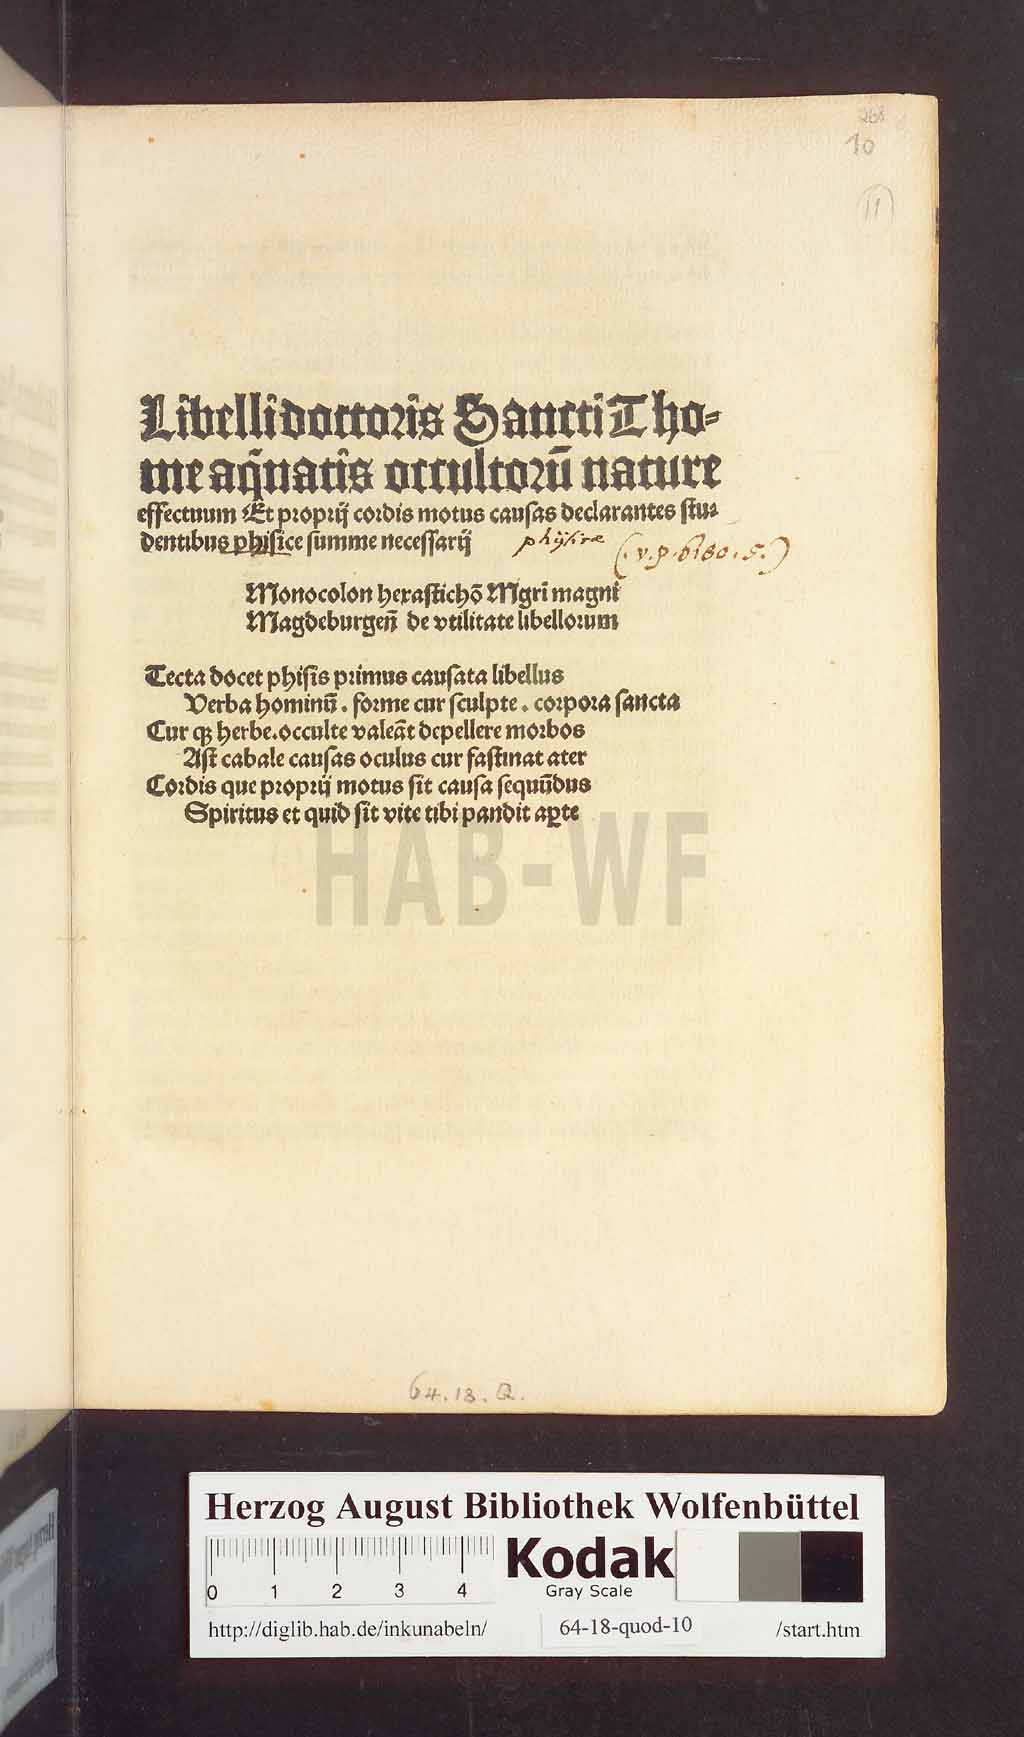 268
10
11
Libelli doctoris Sancti Tho-
me aq̄natis occultorū nature
effectuum Et proprij cordis motus causas declarantes stu-
dentibus phisice summe necessarij
physicæ
(. v. p. 6180. 5.)
Monocolon hexastichō Mgri magni
Magdeburgeñ de vtilitate libellorum
Tecta docet phisis primus causata libellus
Verba hominū . forme cur sculpte . corpora sancta
Cur qꝫ herbe . occulte valeāt depellere morbos
Ast cabale causas oculus cur fastinat ater
Cordis que proprij motus sit causa sequūdus
Spiritus et quid sit vite tibi pandit aꝑte
HAB-WF
64. 18. Q.
Herzog August Bibliothek Wolfenbüttel
0 1 2 3 4
Kodak
Gray Scale
http://diglib.hab.de/inkunabeln/ 64-18-quod-10 /start.htm